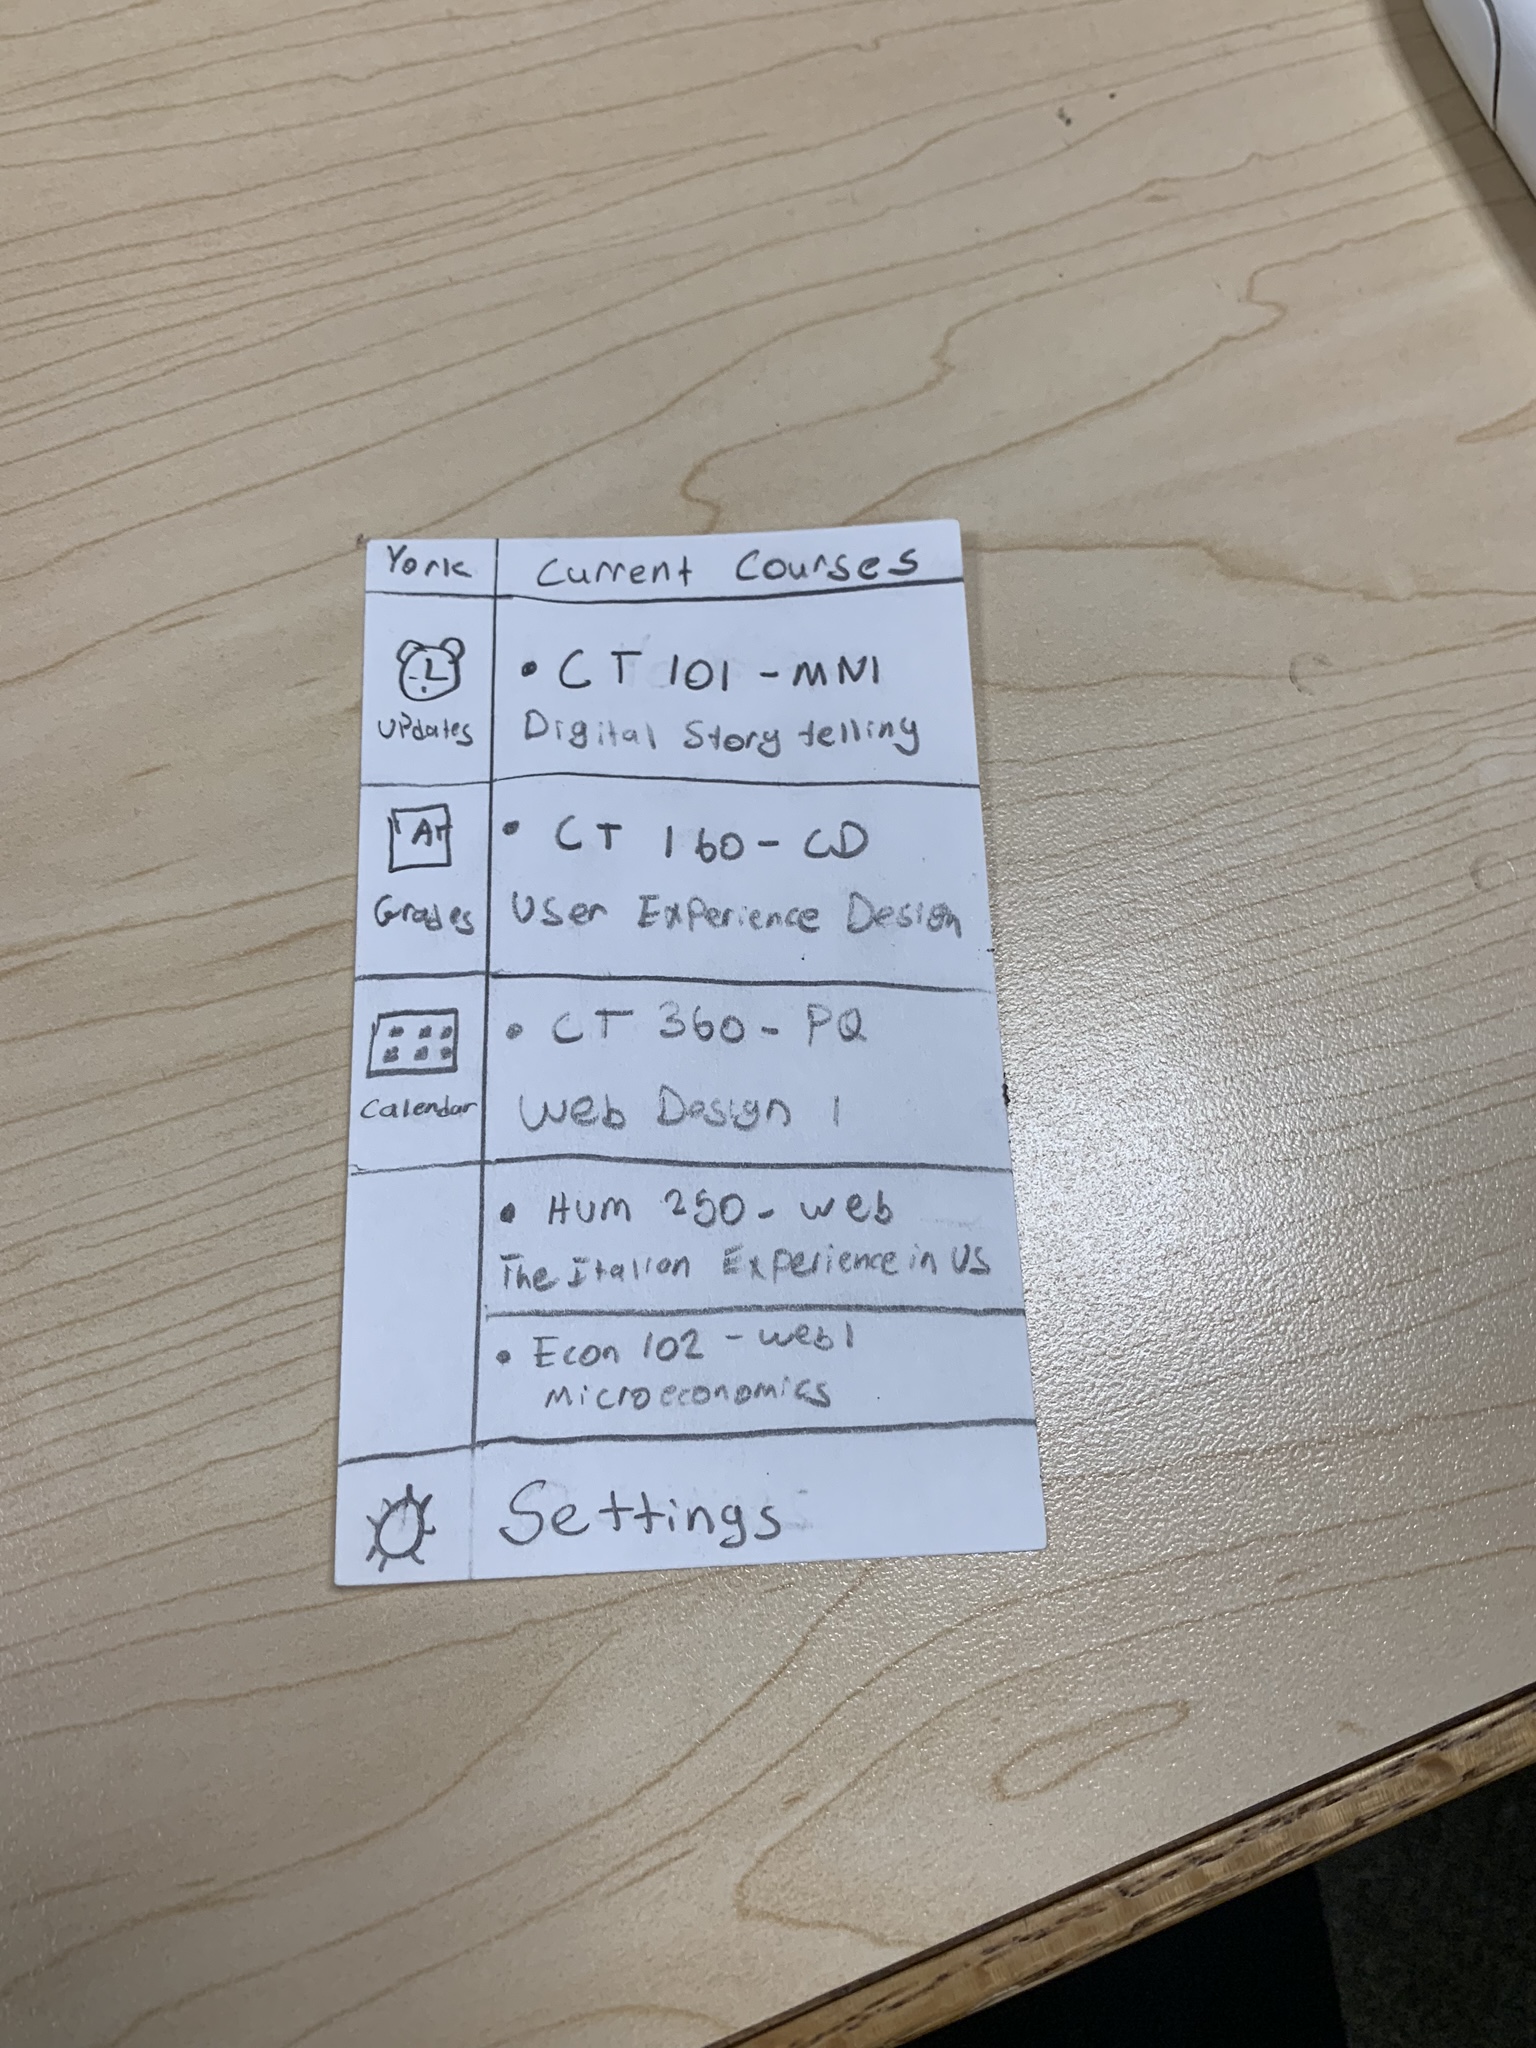 York
Current Courses
Updates
• CT 101 - MN1
Digital Story telling
A+
Grades
• CT 160 - CD
User Experience Design
Calendar
• CT 360 - PQ
Web Design 1
• Hum 250 - web
The Italian Experience in US
• Econ 102 - web1
Microeconomics
Settings